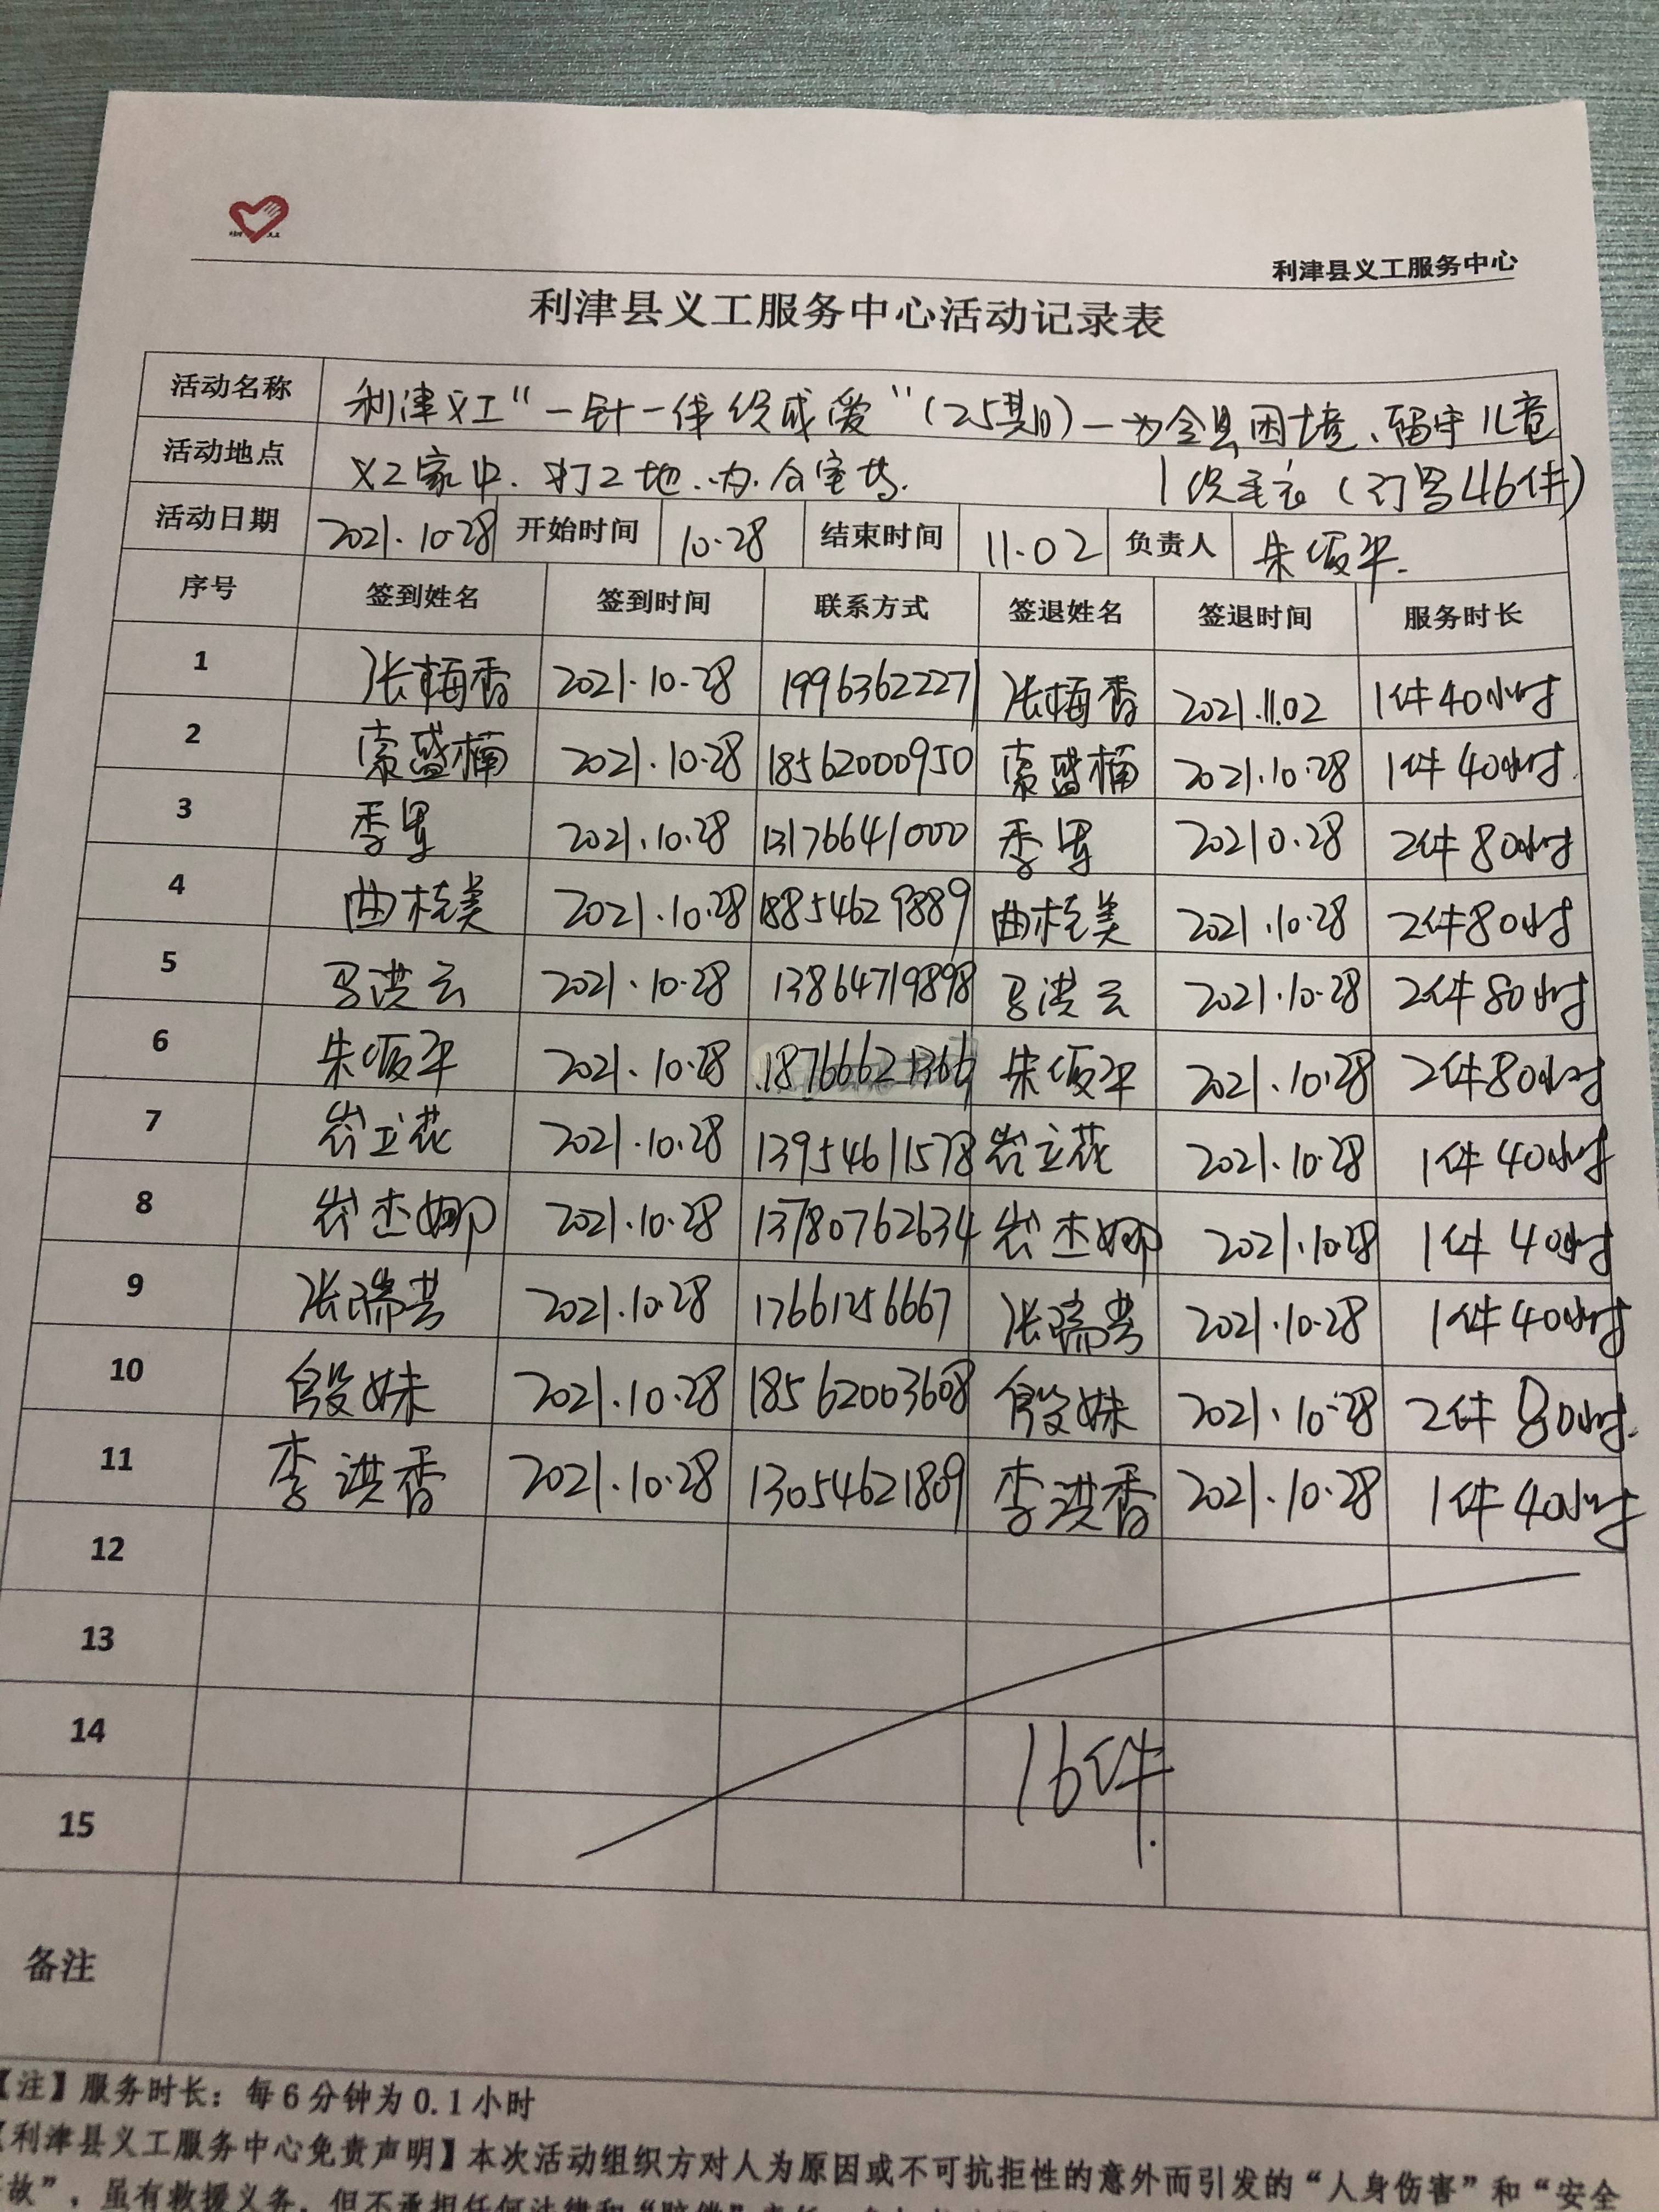 利津县义工服务中心
利津县义工服务中心活动记录表
活动名称 利津义工“一针一线织成爱”(25期)—为全县困境、留守儿童
活动地点 义工家中.打工地.办公室等. 织毛衣(订男46件)
活动日期 2021.10.28 开始时间 10.28 结束时间 11.02 负责人 朱平.
序号 签到姓名 签到时间 联系方式 签退姓名 签退时间 服务时长
1 张梅香 2021.10.28 19963622271 张梅香 2021.11.02 1件40小时
2 索盛楠 2021.10.28 18562000950 索盛楠 2021.10.28 1件40小时.
3 季军 2021.10.28 13176641000 季军 20210.28 2件80小时
4 曲桂美 2021.10.28 18854629889 曲桂美 2021.10.28 2件80小时
5 马洪云 2021.10.28 13864719898 马洪云 2021.10.28 2件80小时
6 朱平 2021.10.28 18766621366 朱平 2021.10.28 2件80小时
7 岩立花 2021.10.28 13954611578 岩立花 2021.10.28 1件40小时
8 杰娜 2021.10.28 13780762634 杰娜 2021.10.28 1件40小时
9 张瑞芸 2021.10.28 17661256667 张瑞芸 2021.10.28 1件40小时
10 殷妹 2021.10.28 18562003608 殷妹 2021.10.28 2件80小时.
11 李洪香 2021.10.28 13054621809 李洪香 2021.10.28 1件40小时
12
13
14 16件.
15
备注
【注】服务时长：每6分钟为0.1小时
【利津县义工服务中心免责声明】本次活动组织方对人为原因或不可抗拒性的意外而引发的“人身伤害”和“安全
故”，虽有救援义务，但不承担任何法律和“赔偿”责任